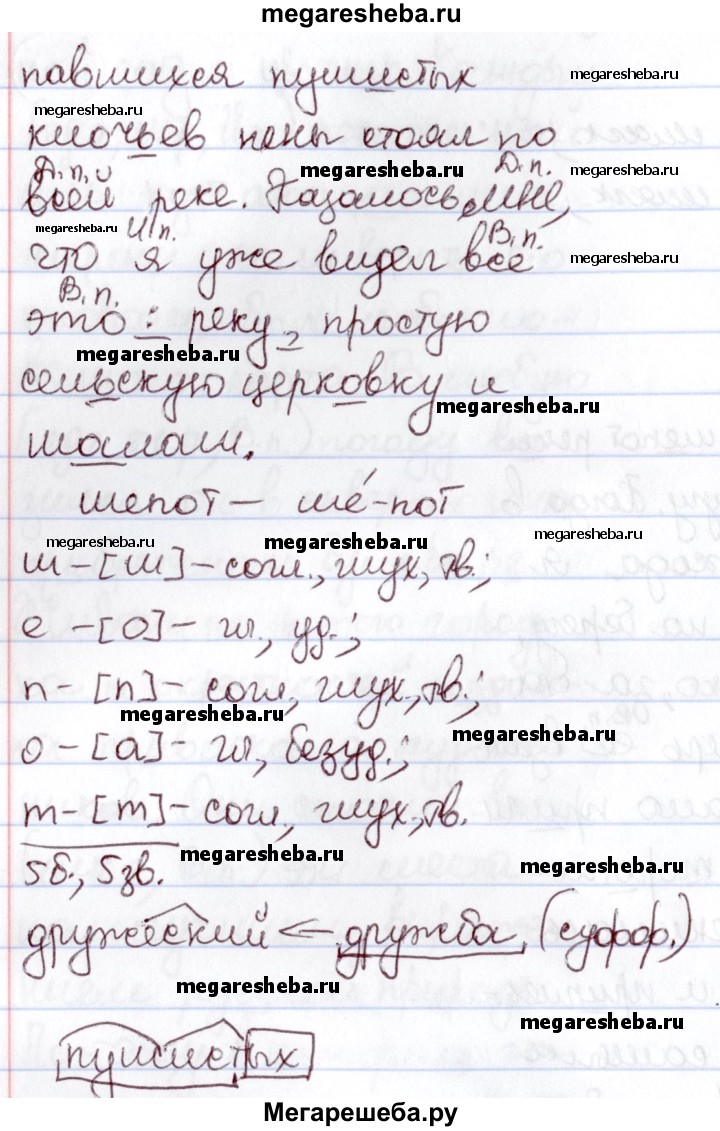 megaresheba.ru
павшихся пушистых
megaresheba.ru
megaresheba.ru
клочьев пены стоял по
megaresheba.ru
Д.п.
Д.п.
megaresheba.ru
megaresheba.ru
всей реке. Казалось мне,
megaresheba.ru
И.п.
В.п.
что я уже видел всё
megaresheba.ru
В.п.
это: реку, простую
megaresheba.ru
сельскую церковку и
megaresheba.ru
шалаш.
шепот — ше́-пот
megaresheba.ru
megaresheba.ru
ш-[ш]-согл., глух., тв.;
е-[о]-гл., уд.;
п-[п]-согл., глух., тв.;
megaresheba.ru
megaresheba.ru
о-[а]-гл., безуд.;
т-[т]-согл., глух., тв.
megaresheba.ru
megaresheba.ru
5б., 5зв.
дружеский ← дружба (суфф.)
megaresheba.ru
megaresheba.ru
пушистых
Мегарешеба.ру